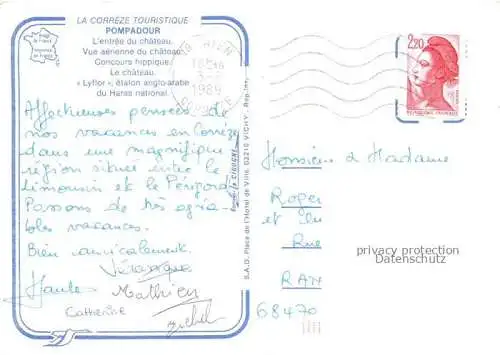 LA CORRÈZE TOURISTIQUE
POMPADOUR
L'entrée du château.
Vue aérienne du château.
Concours hippique.
Le château.
« Lyflor », étalon anglo-arabe
du Haras national.
AYEN
1989
CORREZE
2,20
REPUBLIQUE FRANCAISE
Affectueuses pensées de
nos vacances en Corrèze
dans une magnifique
région située entre le
Limousin et le Périgord
Passons de très agréa-
bles vacances.
Bien amicalement.
Véronique
Mathieu
Catherine
Michel
S.A.D. Place de l'Hôtel de Ville, 03210 VICHY
Monsieur & Madame
Roger
et
Rue
RAN
68470
privacy protection
Datenschutz